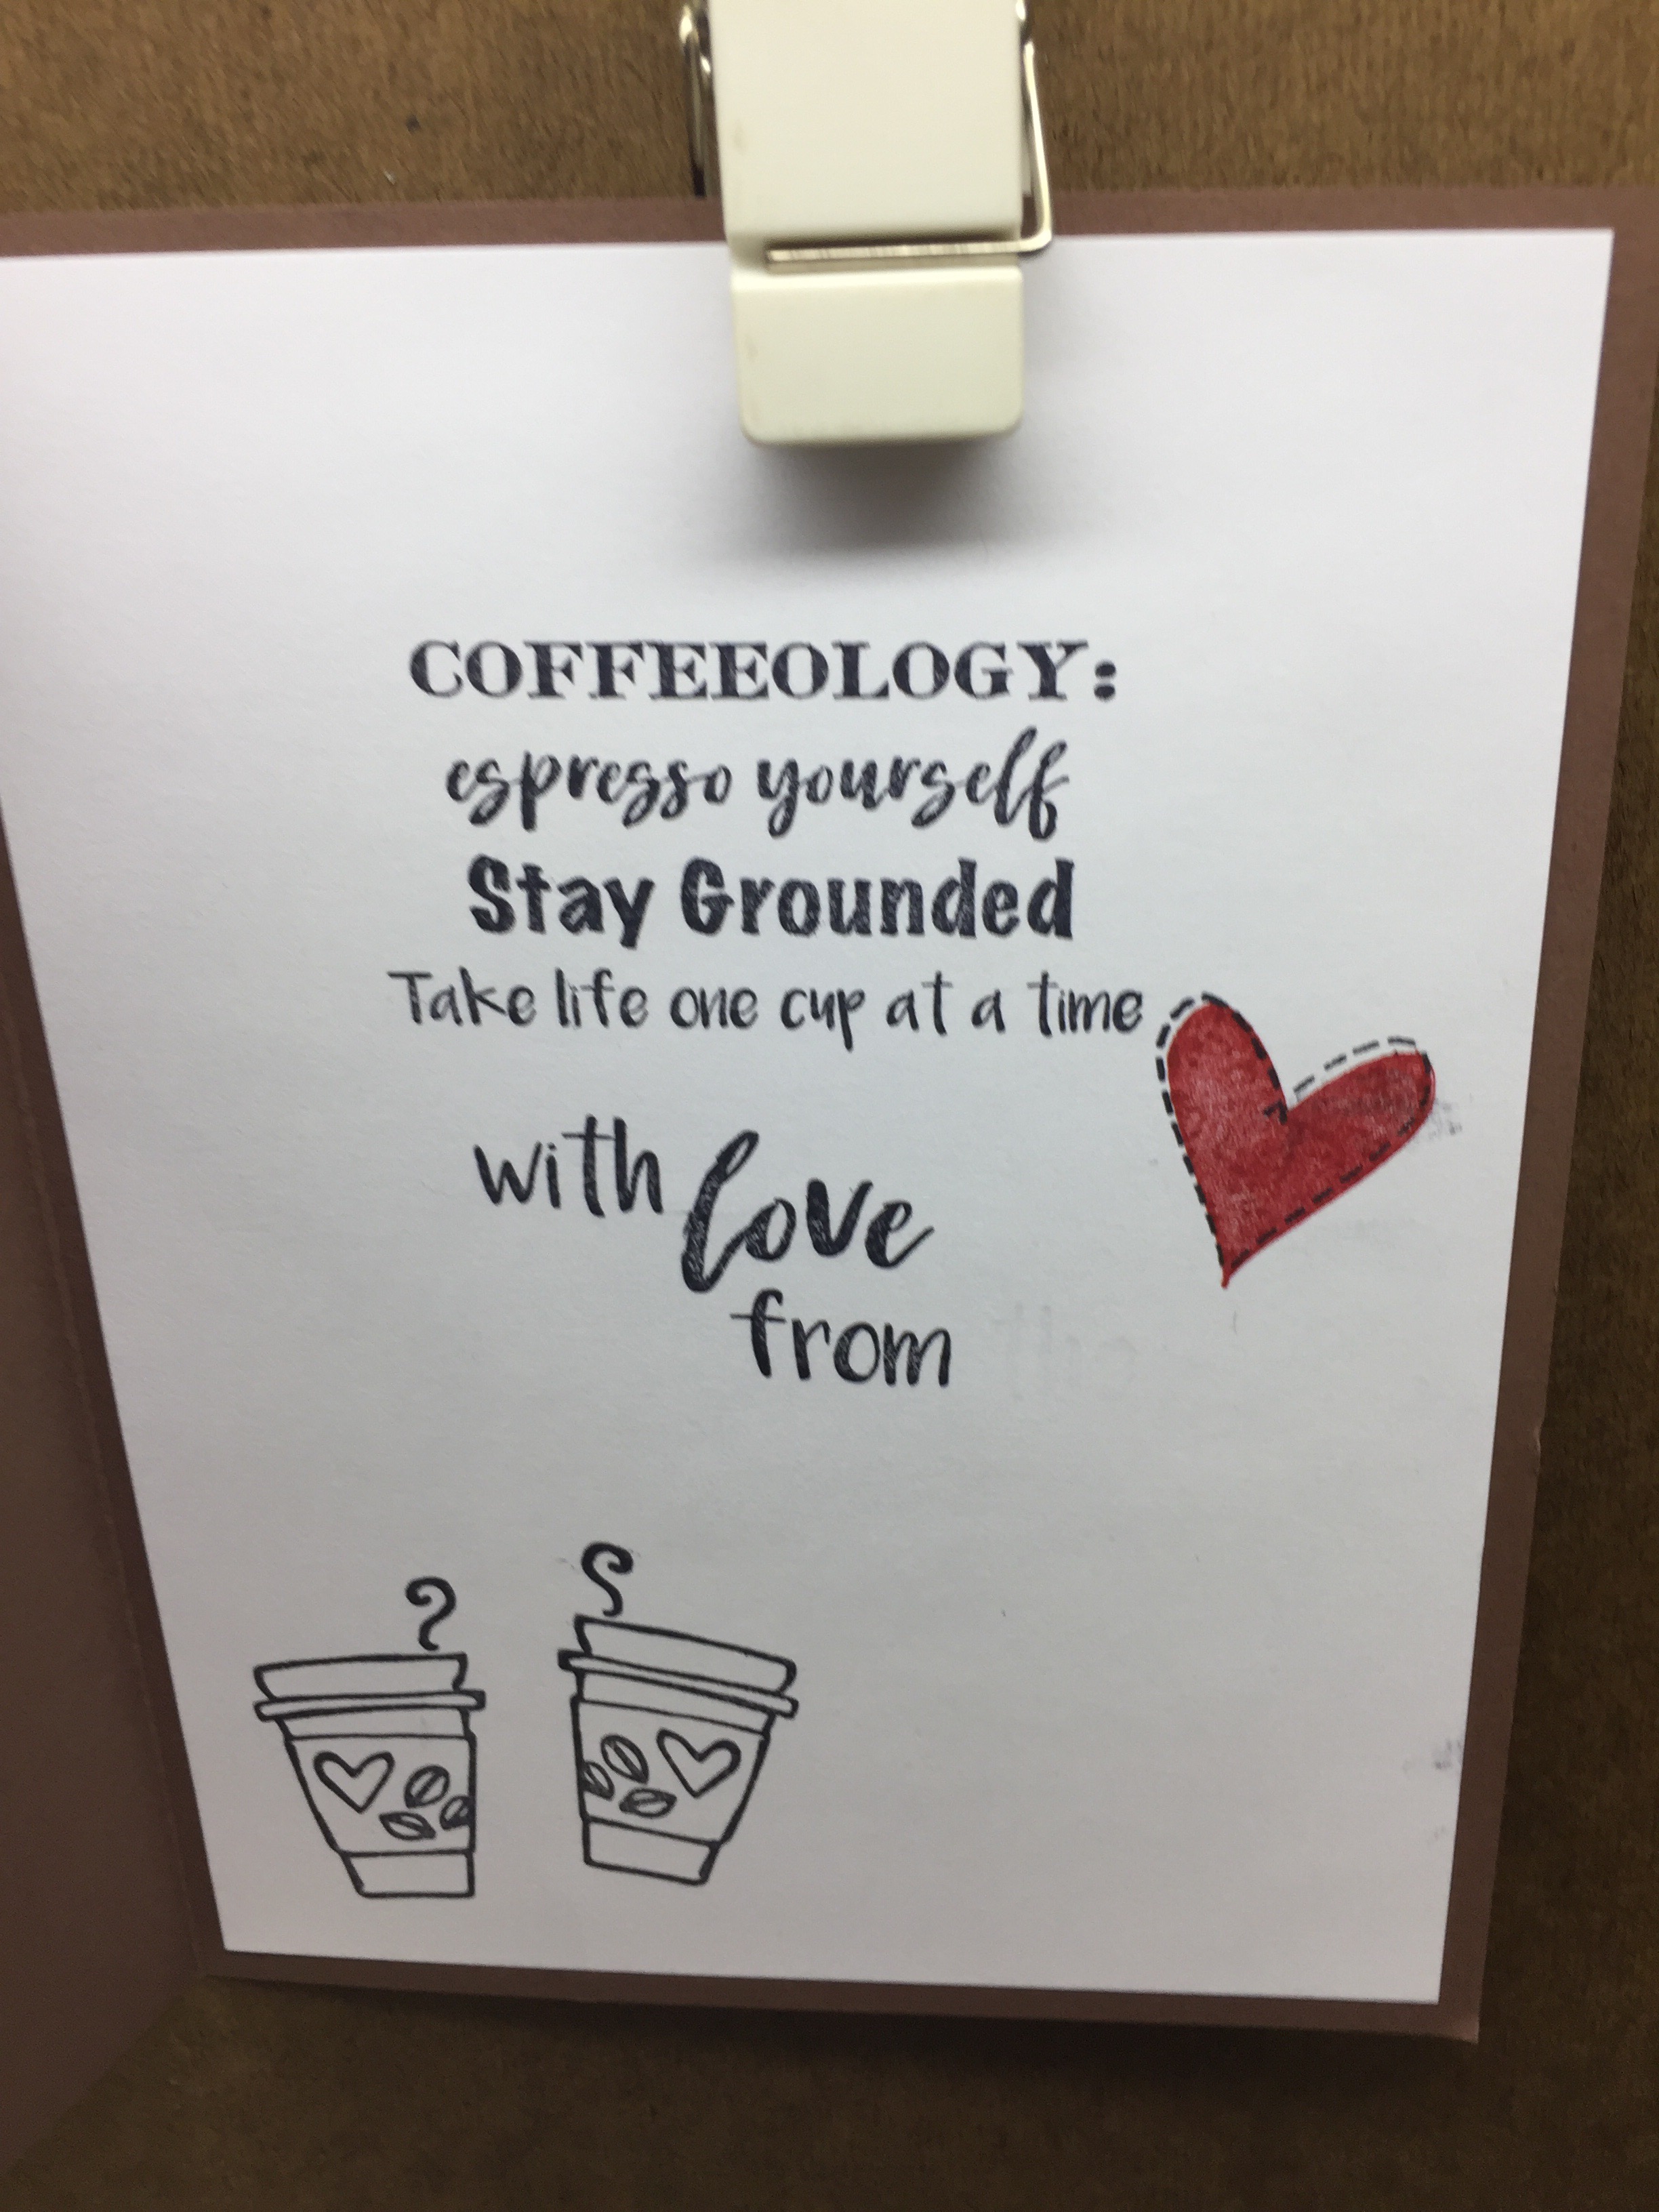 COFFEEOLOGY:
espresso yourself
Stay Grounded
Take life one cup at a time
with love
from